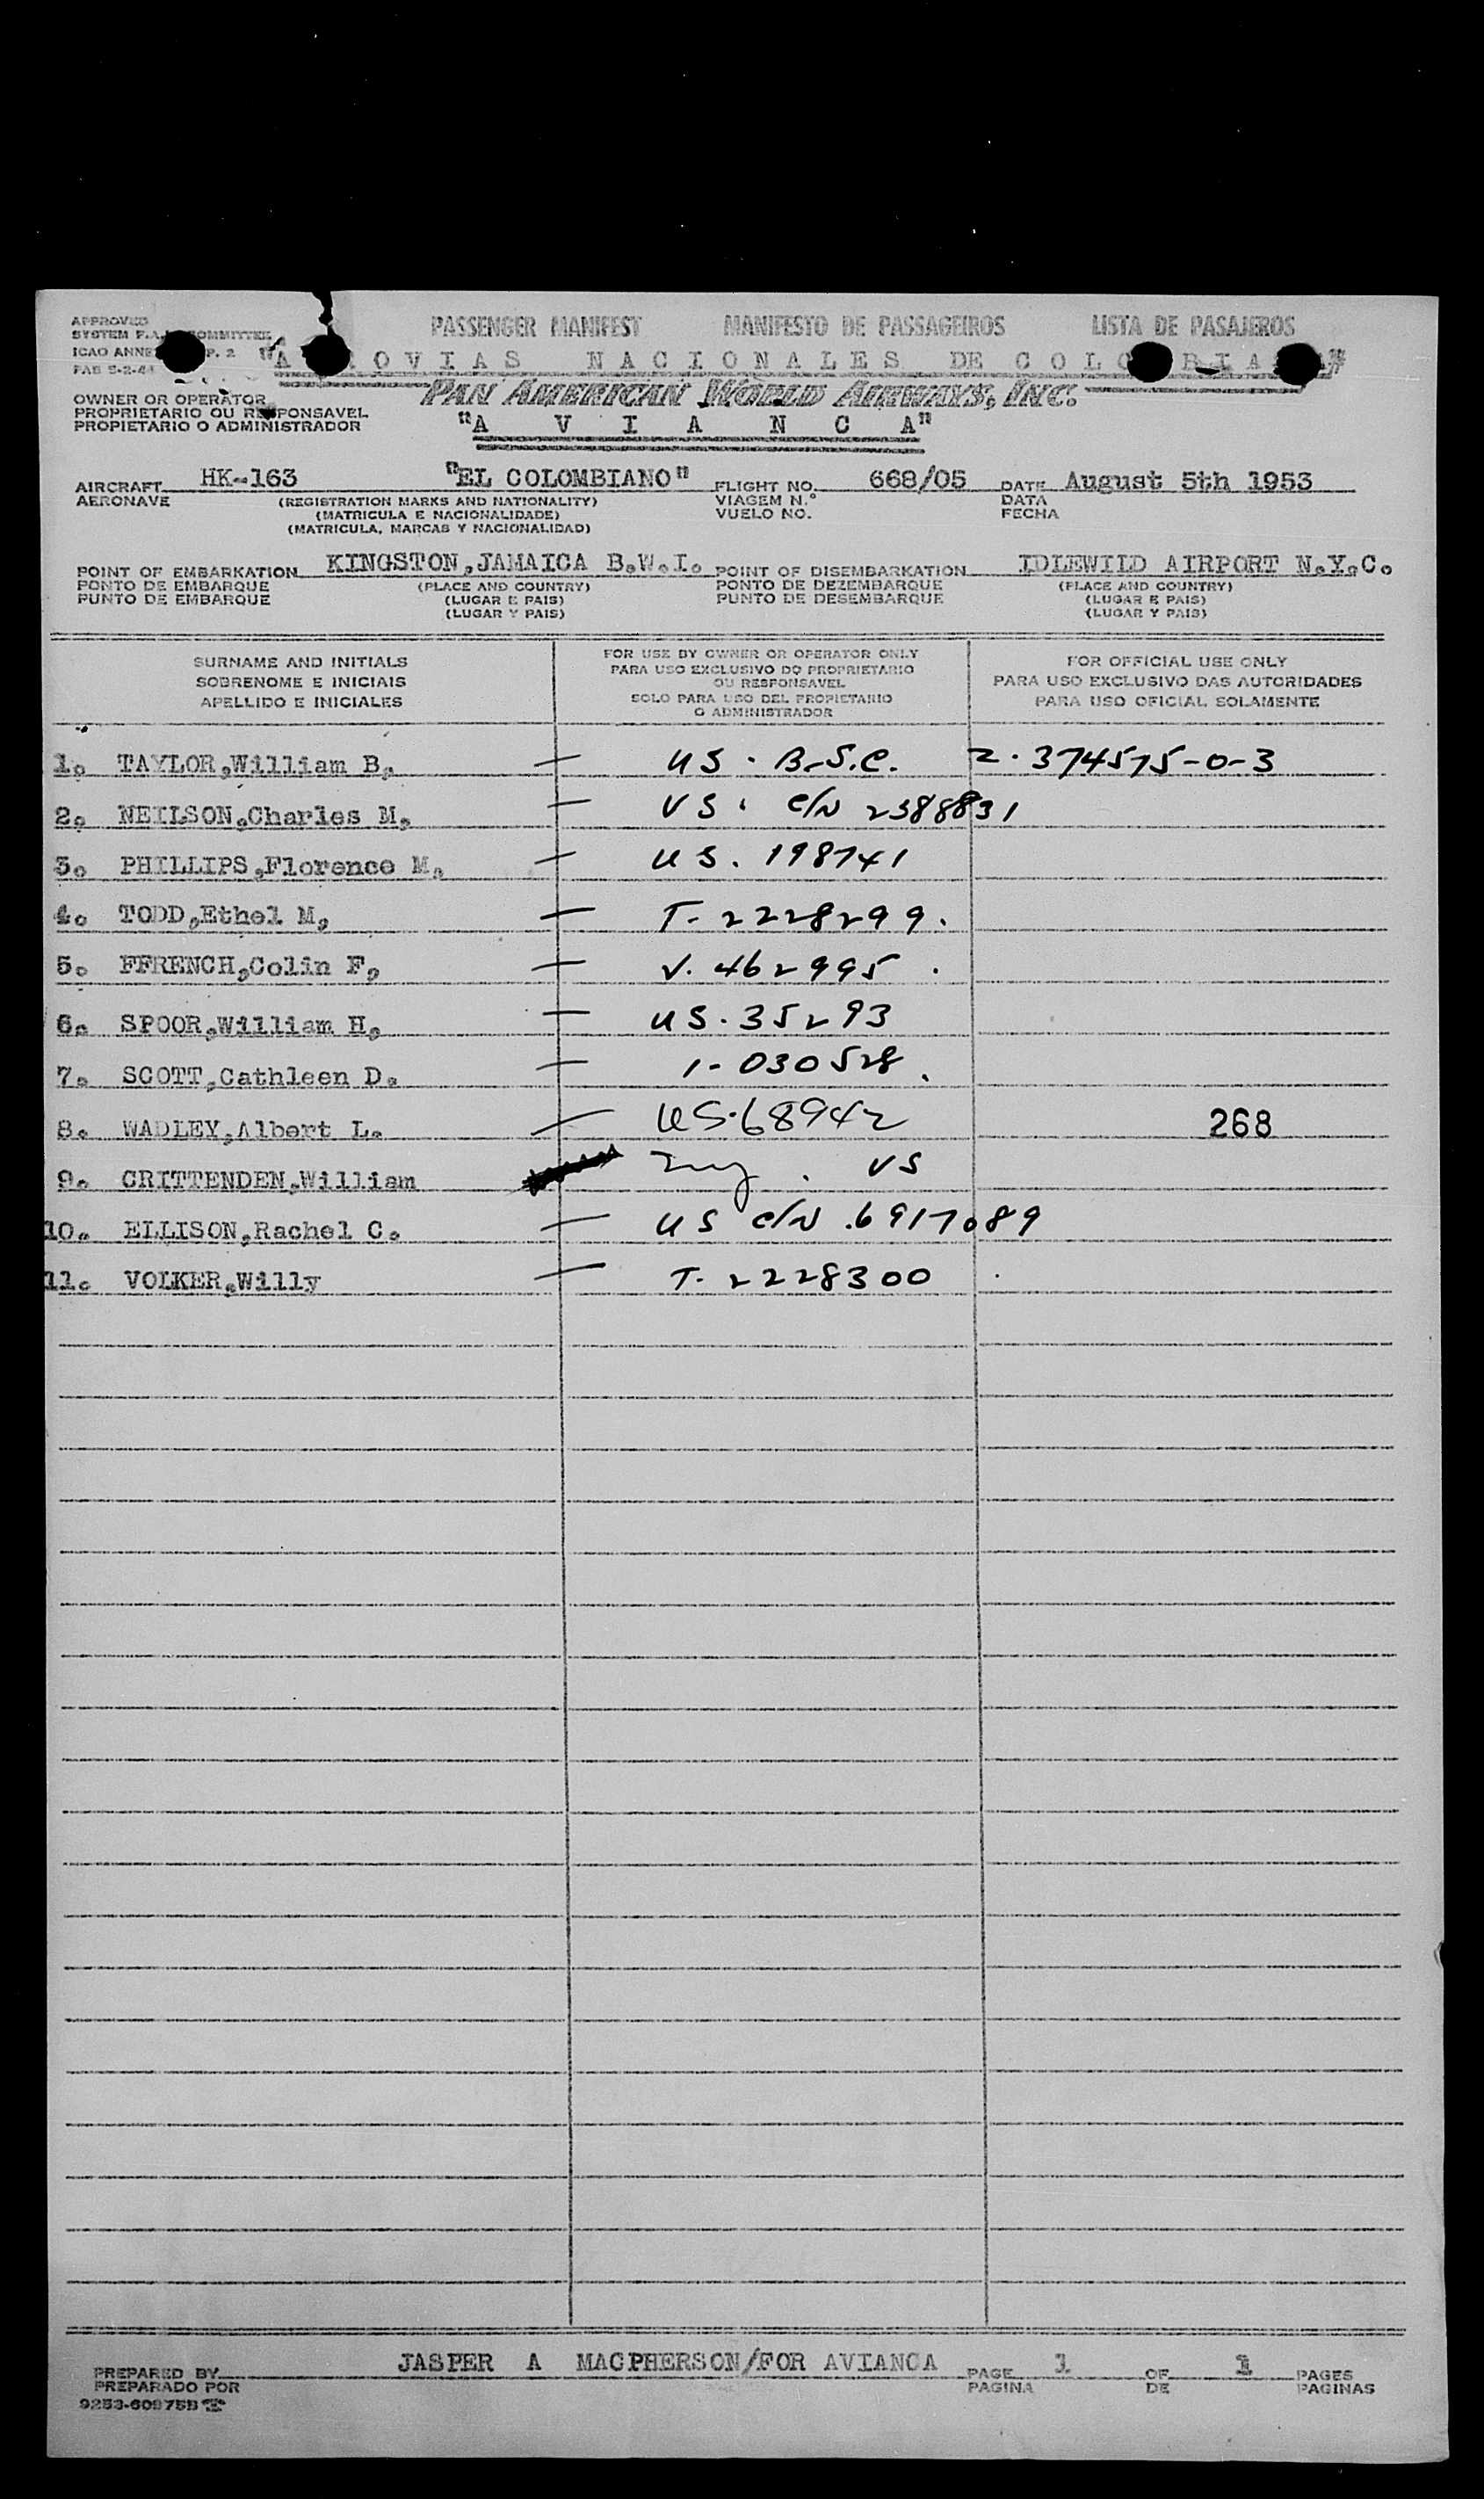 APPROVED
SYSTEM F.A.L. COMMITTEE
ICAO ANNE P. 2
FAB 5-2-44
PASSENGER MANIFEST MANIFESTO DE PASSAGEIROS LISTA DE PASAJEROS
"A ROVIAS NACIONALES DE COLO BIA
OWNER OR OPERATOR
PROPRIETARIO OU RESPONSAVEL
PROPIETARIO O ADMINISTRADOR
PAN AMERICAN WORLD AIRWAYS, INC.
"A V I A N C A"
AIRCRAFT HK-163 "EL COLOMBIANO" FLIGHT NO. 668/05 DATE August 5th 1953
AERONAVE (REGISTRATION MARKS AND NATIONALITY) VIAGEM N.° DATA
(MATRICULA E NACIONALIDADE) VUELO NO. FECHA
(MATRICULA, MARCAS Y NACIONALIDAD)
POINT OF EMBARKATION KINGSTON,JAMAICA B.W.I. POINT OF DISEMBARKATION IDLEWILD AIRPORT N.Y.C.
PONTO DE EMBARQUE (PLACE AND COUNTRY) PONTO DE DEZEMBARQUE (PLACE AND COUNTRY)
PUNTO DE EMBARQUE (LUGAR E PAIS) PUNTO DE DESEMBARQUE (LUGAR E PAIS)
(LUGAR Y PAIS) (LUGAR Y PAIS)
SURNAME AND INITIALS
SOBRENOME E INICIAIS
APELLIDO E INICIALES
FOR USE BY OWNER OR OPERATOR ONLY
PARA USO EXCLUSIVO DO PROPRIETARIO
OU RESPONSAVEL
SOLO PARA USO DEL PROPIETARIO
O ADMINISTRADOR
FOR OFFICIAL USE ONLY
PARA USO EXCLUSIVO DAS AUTORIDADES
PARA USO OFICIAL SOLAMENTE
1. TAYLOR,William B. — US. B.S.C. 2.374575-0-3
2. NEILSON,Charles M. — US. C/N 2388831
3. PHILLIPS,Florence M. — US. 198741
4. TODD,Ethel M. — T-2228299.
5. FFRENCH,Colin F. — V. 462995.
6. SPOOR,William H. — US.35293
7. SCOTT,Cathleen D. — 1-030528.
8. WADLEY,Albert L. — US.68942 268
9. CRITTENDEN,William US
10. ELLISON,Rachel C. — US C/N .6917089
11. VOLKER,Willy — T-2228300
PREPARED BY JASPER A MACPHERSON/FOR AVIANCA PAGE 1 OF 1 PAGES
PREPARADO POR PAGINA DE PAGINAS
9253-60975B